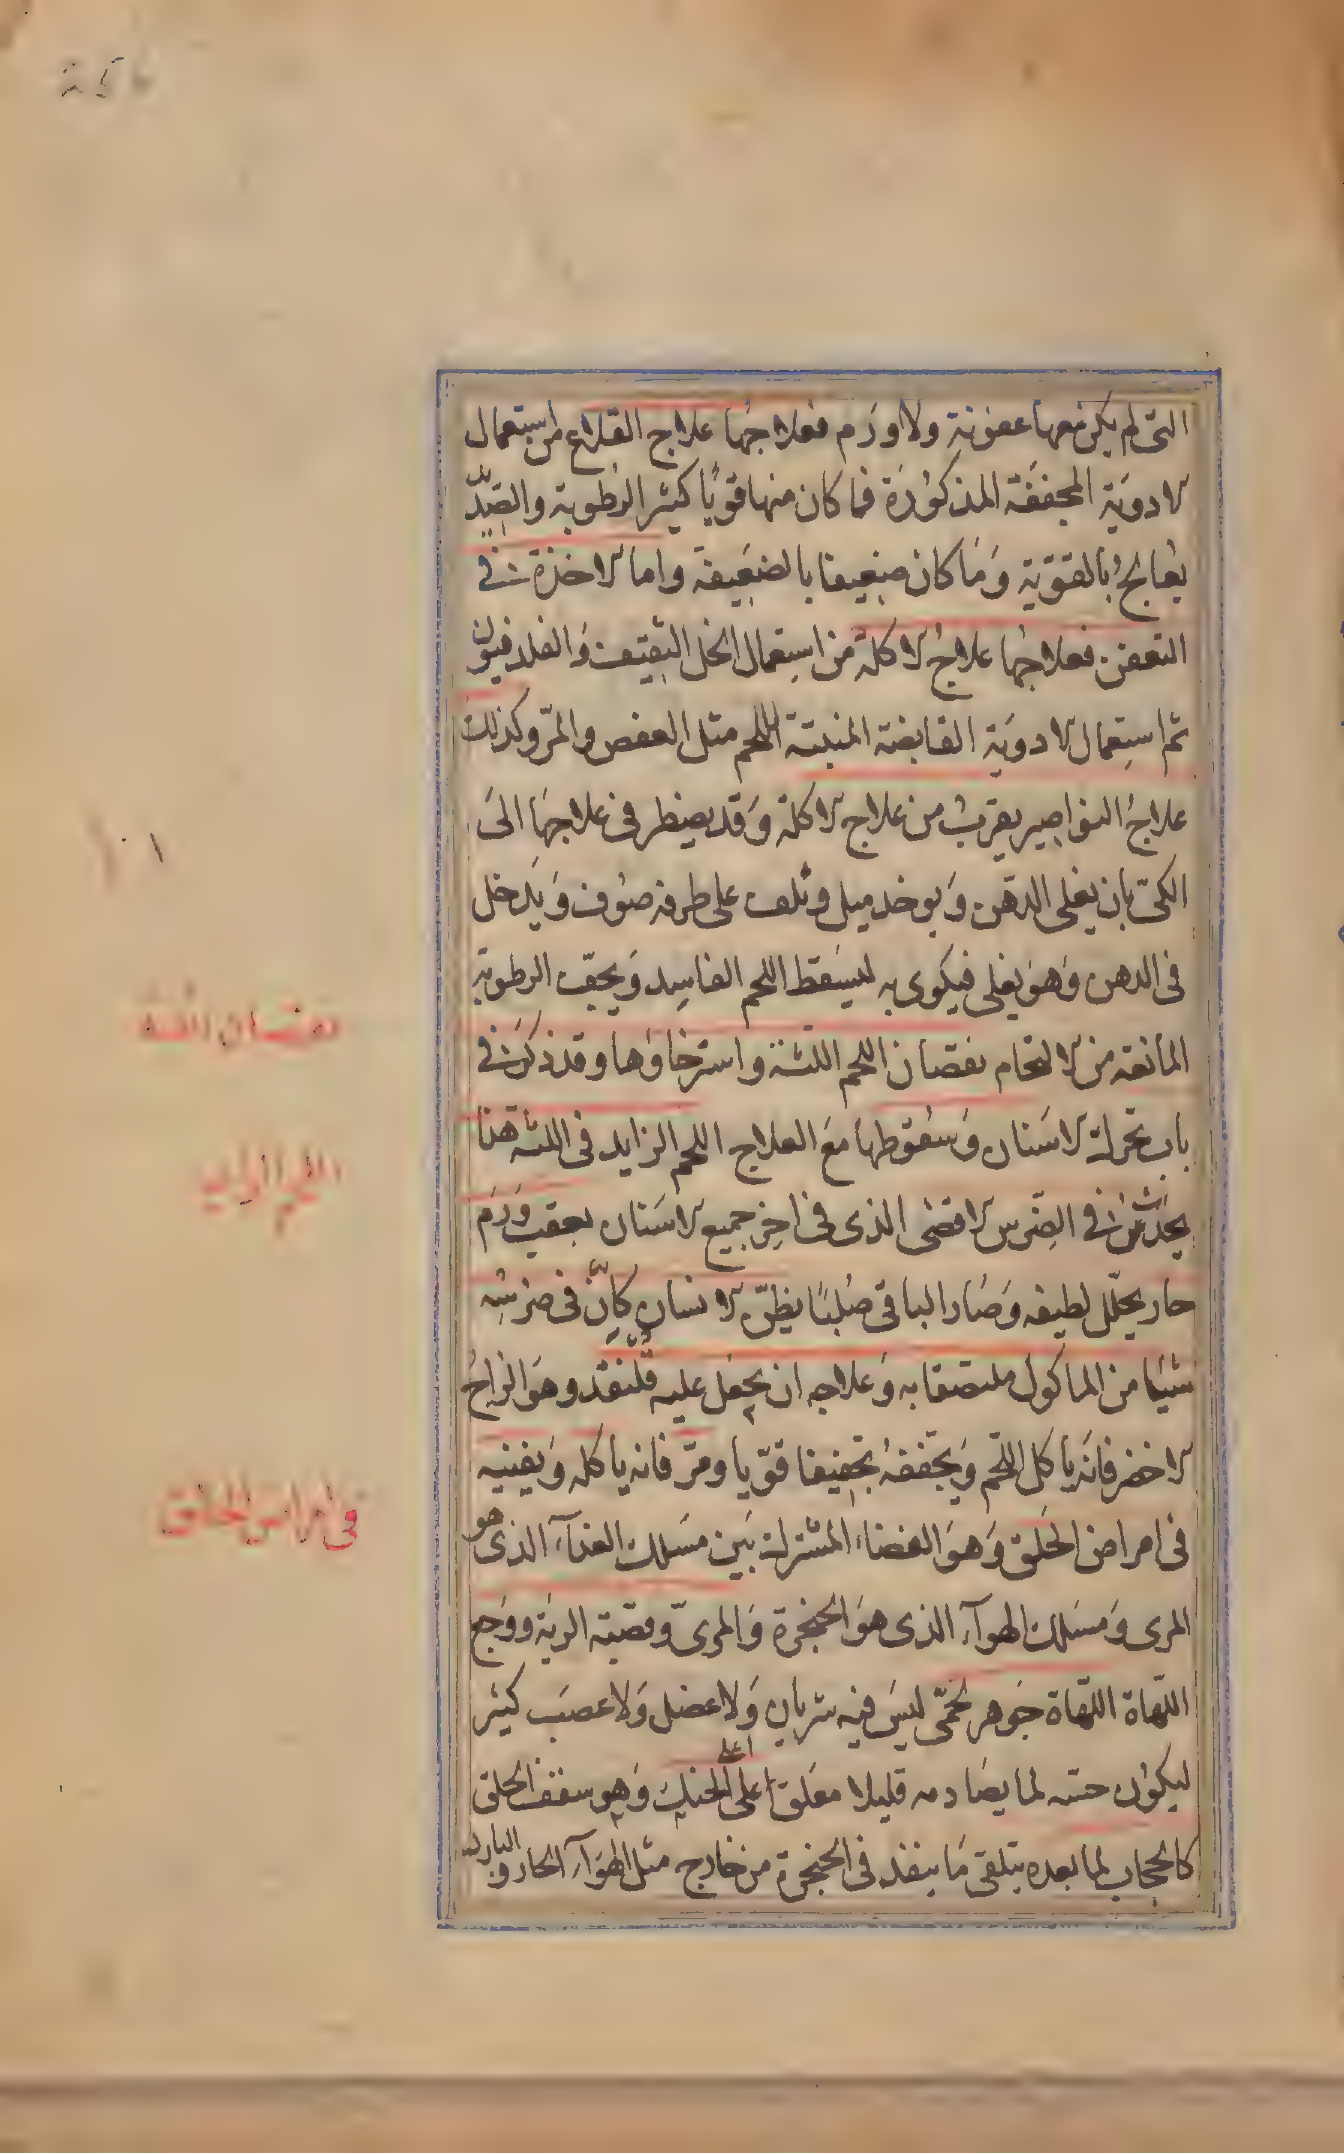 التى لم يكن معها عفونة ولا ورم فعلاجها علاج القلاع من استعمال
الادوية المجففة المذكورة فما كان منها قويا كثير الرطوبة والصديد
يعالج بالقوية وما كان ضعيفا بالضعيفة واما الاخذة فى
التعفن فعلاجها علاج الاكلة من استعمال الخل الثقيف والفلدفيون
ثم استعمال الادوية القابضة المنبتة اللحم مثل العفص والمر وكذلك
علاج النواصير يقرب من علاج الاكلة وقد يضطر فى علاجها الى
الكى بان يغلى الدهن ويوخذ ميل ويلف على طرفه صوف ويدخل
فى الدهن وهو يغلى فيكوى به ليسقط اللحم الفاسد ويجف الرطوبة
المانعة من الالتحام نقصان اللحم اللثة واسترخاؤها وقد ذكرت فى
باب تحرك الاسنان وسقوطها مع العلاج اللحم الزايد فى اللثة هذا
يحدث فى الضرس الاقصى الذى فى اخر جميع الاسنان بعقب ورم
حار يحلل لطيفه وصار الباقى صلبا يظن الانسان كان فى ضرسه
شيئا من الماكول ملتصقا به وعلاجه ان يجعل عليه قلنفد وهو الزاج
الاخضر فانه ياكل اللحم ويجففه تجفيفا قويا ومر فانه ياكله ويفنيه
فى امراض الحلق وهو الفضاء المشترك بين مسلك الغذآء الذى هو
المرى ومسلك الهوآء الذى هو الحنجرة والمرى وقصبة الرية ووجع
اللهاة اللهاة جوهر لحمى ليس فيه شريان ولا عضل ولا عصب كثير
ليكون حسه لما يصادمه قليلا معلق اعلى الحنك وهو سقف الحلق
كالحجاب لما بعده يتلقى ما ينفذ فى الحنجرة من خارج مثل الهوآء الحار والبارد
نقصان اللثة
اللحم الزايد
فى امراض الحلق